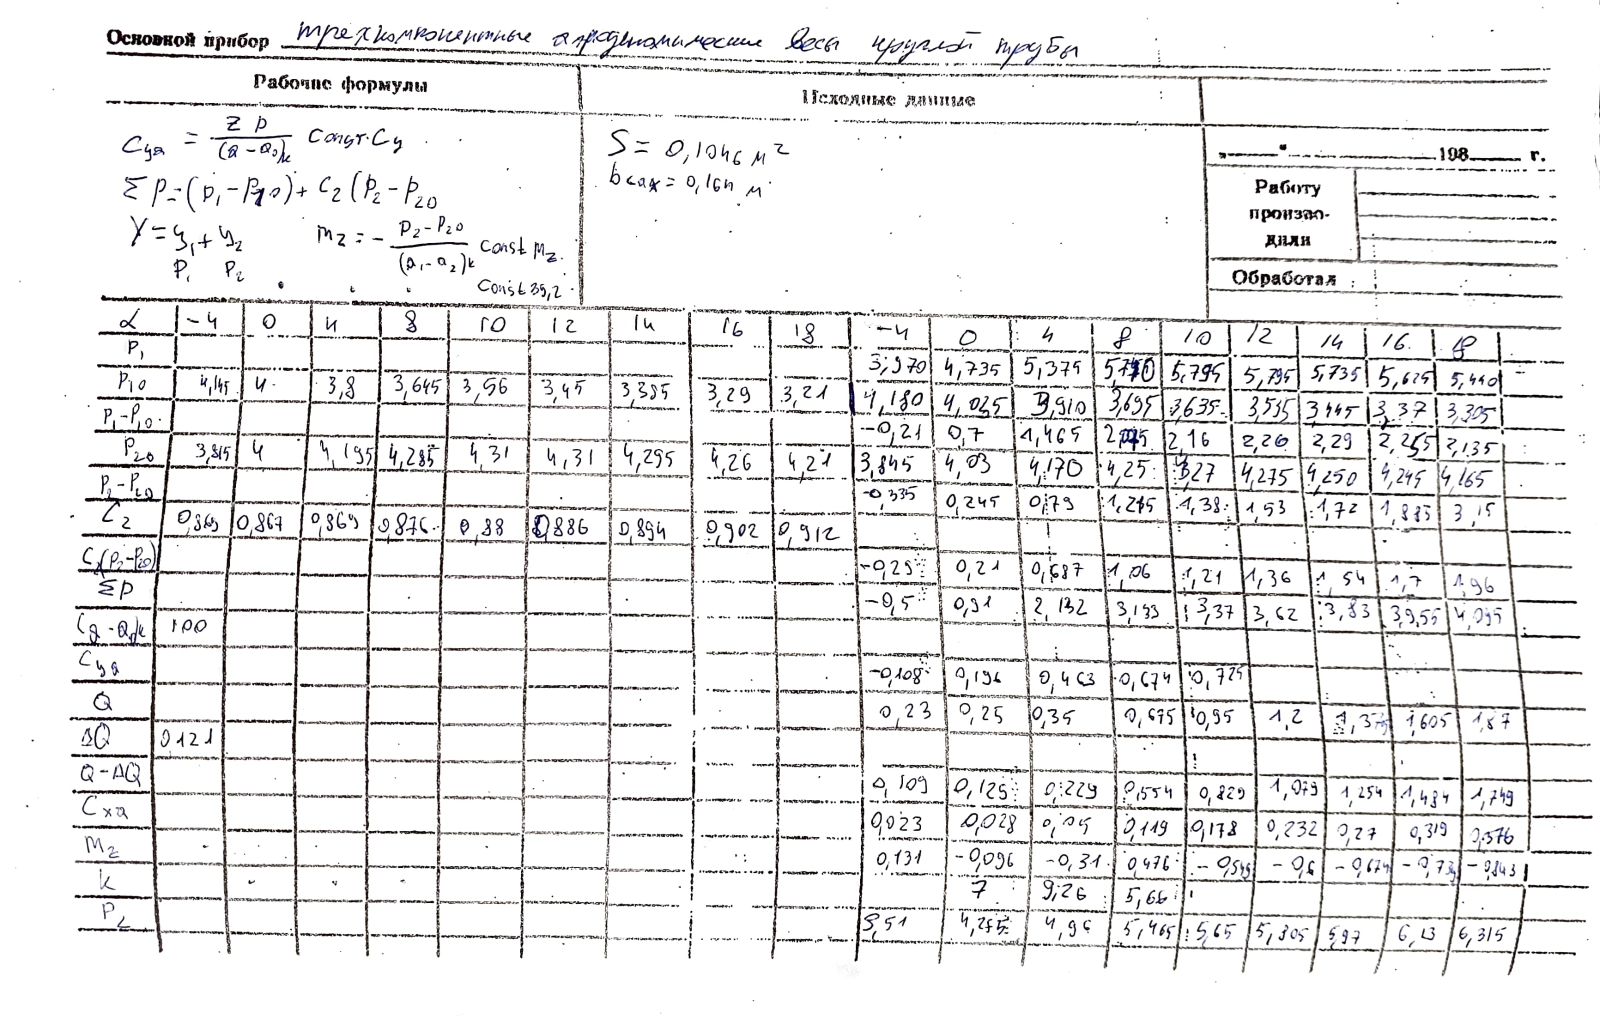 Основной прибор трехкомпонентные аэродинамические весы круглой трубы
Рабочие формулы
Исходные данные
Cya = Σ P / (a - a0)k Const. Cy
Σ P = (P1 - P10) + C2 (P2 - P20
Y = y1 + y2
P1 P2
mz = - P2 - P20 / (a1 - a2)k Const mz.
Const 39,2
S = 0,1046 м2
bсах = 0,164 м
„ " 198 г.
Работу произво-дили
Обработал
α -4 0 4 8 10 12 14 16 18 -4 0 4 8 10 12 14 16 18
P1 3,970 4,735 5,375 5,795 5,795 5,735 5,625 5,440
P10 4,145 4 3,8 3,645 3,56 3,45 3,385 3,29 3,21 4,180 4,035 3,910 3,695 3,635 3,535 3,445 3,37 3,305
P1-P10 -0,21 0,7 1,465 2,16 2,26 2,29 2,255 2,135
P20 3,815 4 4,195 4,285 4,31 4,31 4,295 4,26 4,21 3,845 4,03 4,170 4,25 4,27 4,275 4,250 4,245 4,165
P2-P20 -0,335 0,245 0,79 1,215 1,38 1,53 1,72 1,885 3,15
C2 0,869 0,867 0,869 0,876 0,88 0,886 0,894 0,902 0,912
C2(P2-P20) -0,29 0,21 0,687 1,06 1,21 1,36 1,54 1,7 1,96
ΣP -0,5 0,91 2,132 3,133 3,37 3,62 3,83 3,955 4,095
(a-a0)k 100
Cya -0,108 0,196 0,463 0,674 0,725
Q 0,23 0,25 0,35 0,675 0,95 1,2 1,375 1,605 1,87
ΔQ 0,121
Q-ΔQ 0,109 0,129 0,229 0,554 0,829 1,079 1,254 1,484 1,749
Cxa 0,023 0,028 0,05 0,119 0,178 0,232 0,27 0,319 0,376
mz 0,131 -0,096 -0,31 0,476 -0,549 -0,6 -0,674 -0,739 -0,843
k 7 9,26 5,66
P2 3,51 4,275 4,96 5,465 5,65 5,805 5,97 6,13 6,315